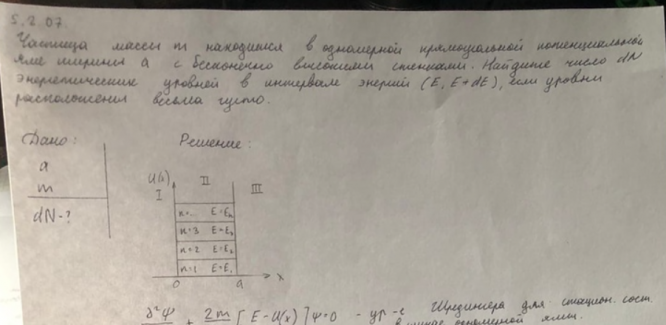 5.2.07.
Частица массы m находится в одномерной прямоугольной потенциальной
яме ширины a с бесконечно высокими стенками. Найдите число dN
энергетических уровней в интервале энергий (E, E+dE), если уровни
расположены весьма густо.
Дано:
a
m
dN-?
Решение:
U(x)
I
II
III
n=... E=En
n=3 E=E3
n=2 E=E2
n=1 E=E1
0 a x
∂²Ψ + 2m [E-U(x)]Ψ=0 - ур-е Шредингера для стацион. сост.
в случае одномерной